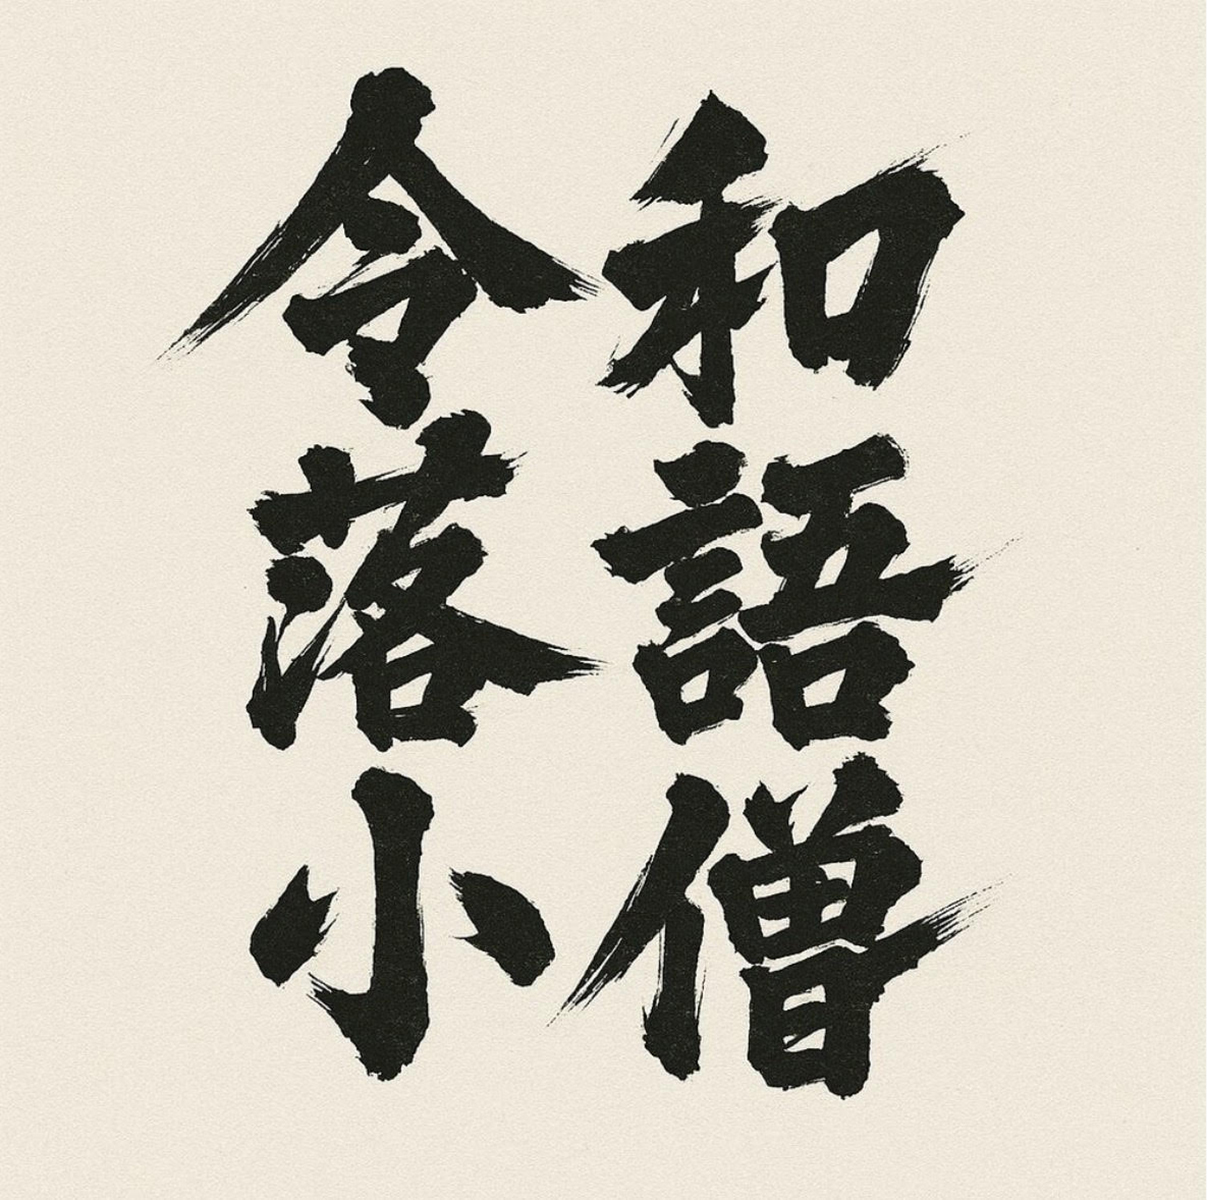 令和
落語
小僧